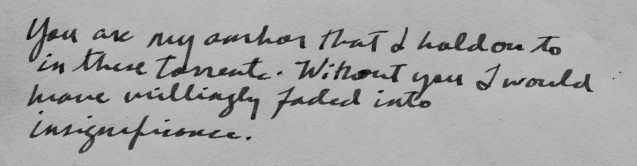 You are my anchor that I hold on to
in these torrents. Without you I would
have willingly faded into
insignificance.